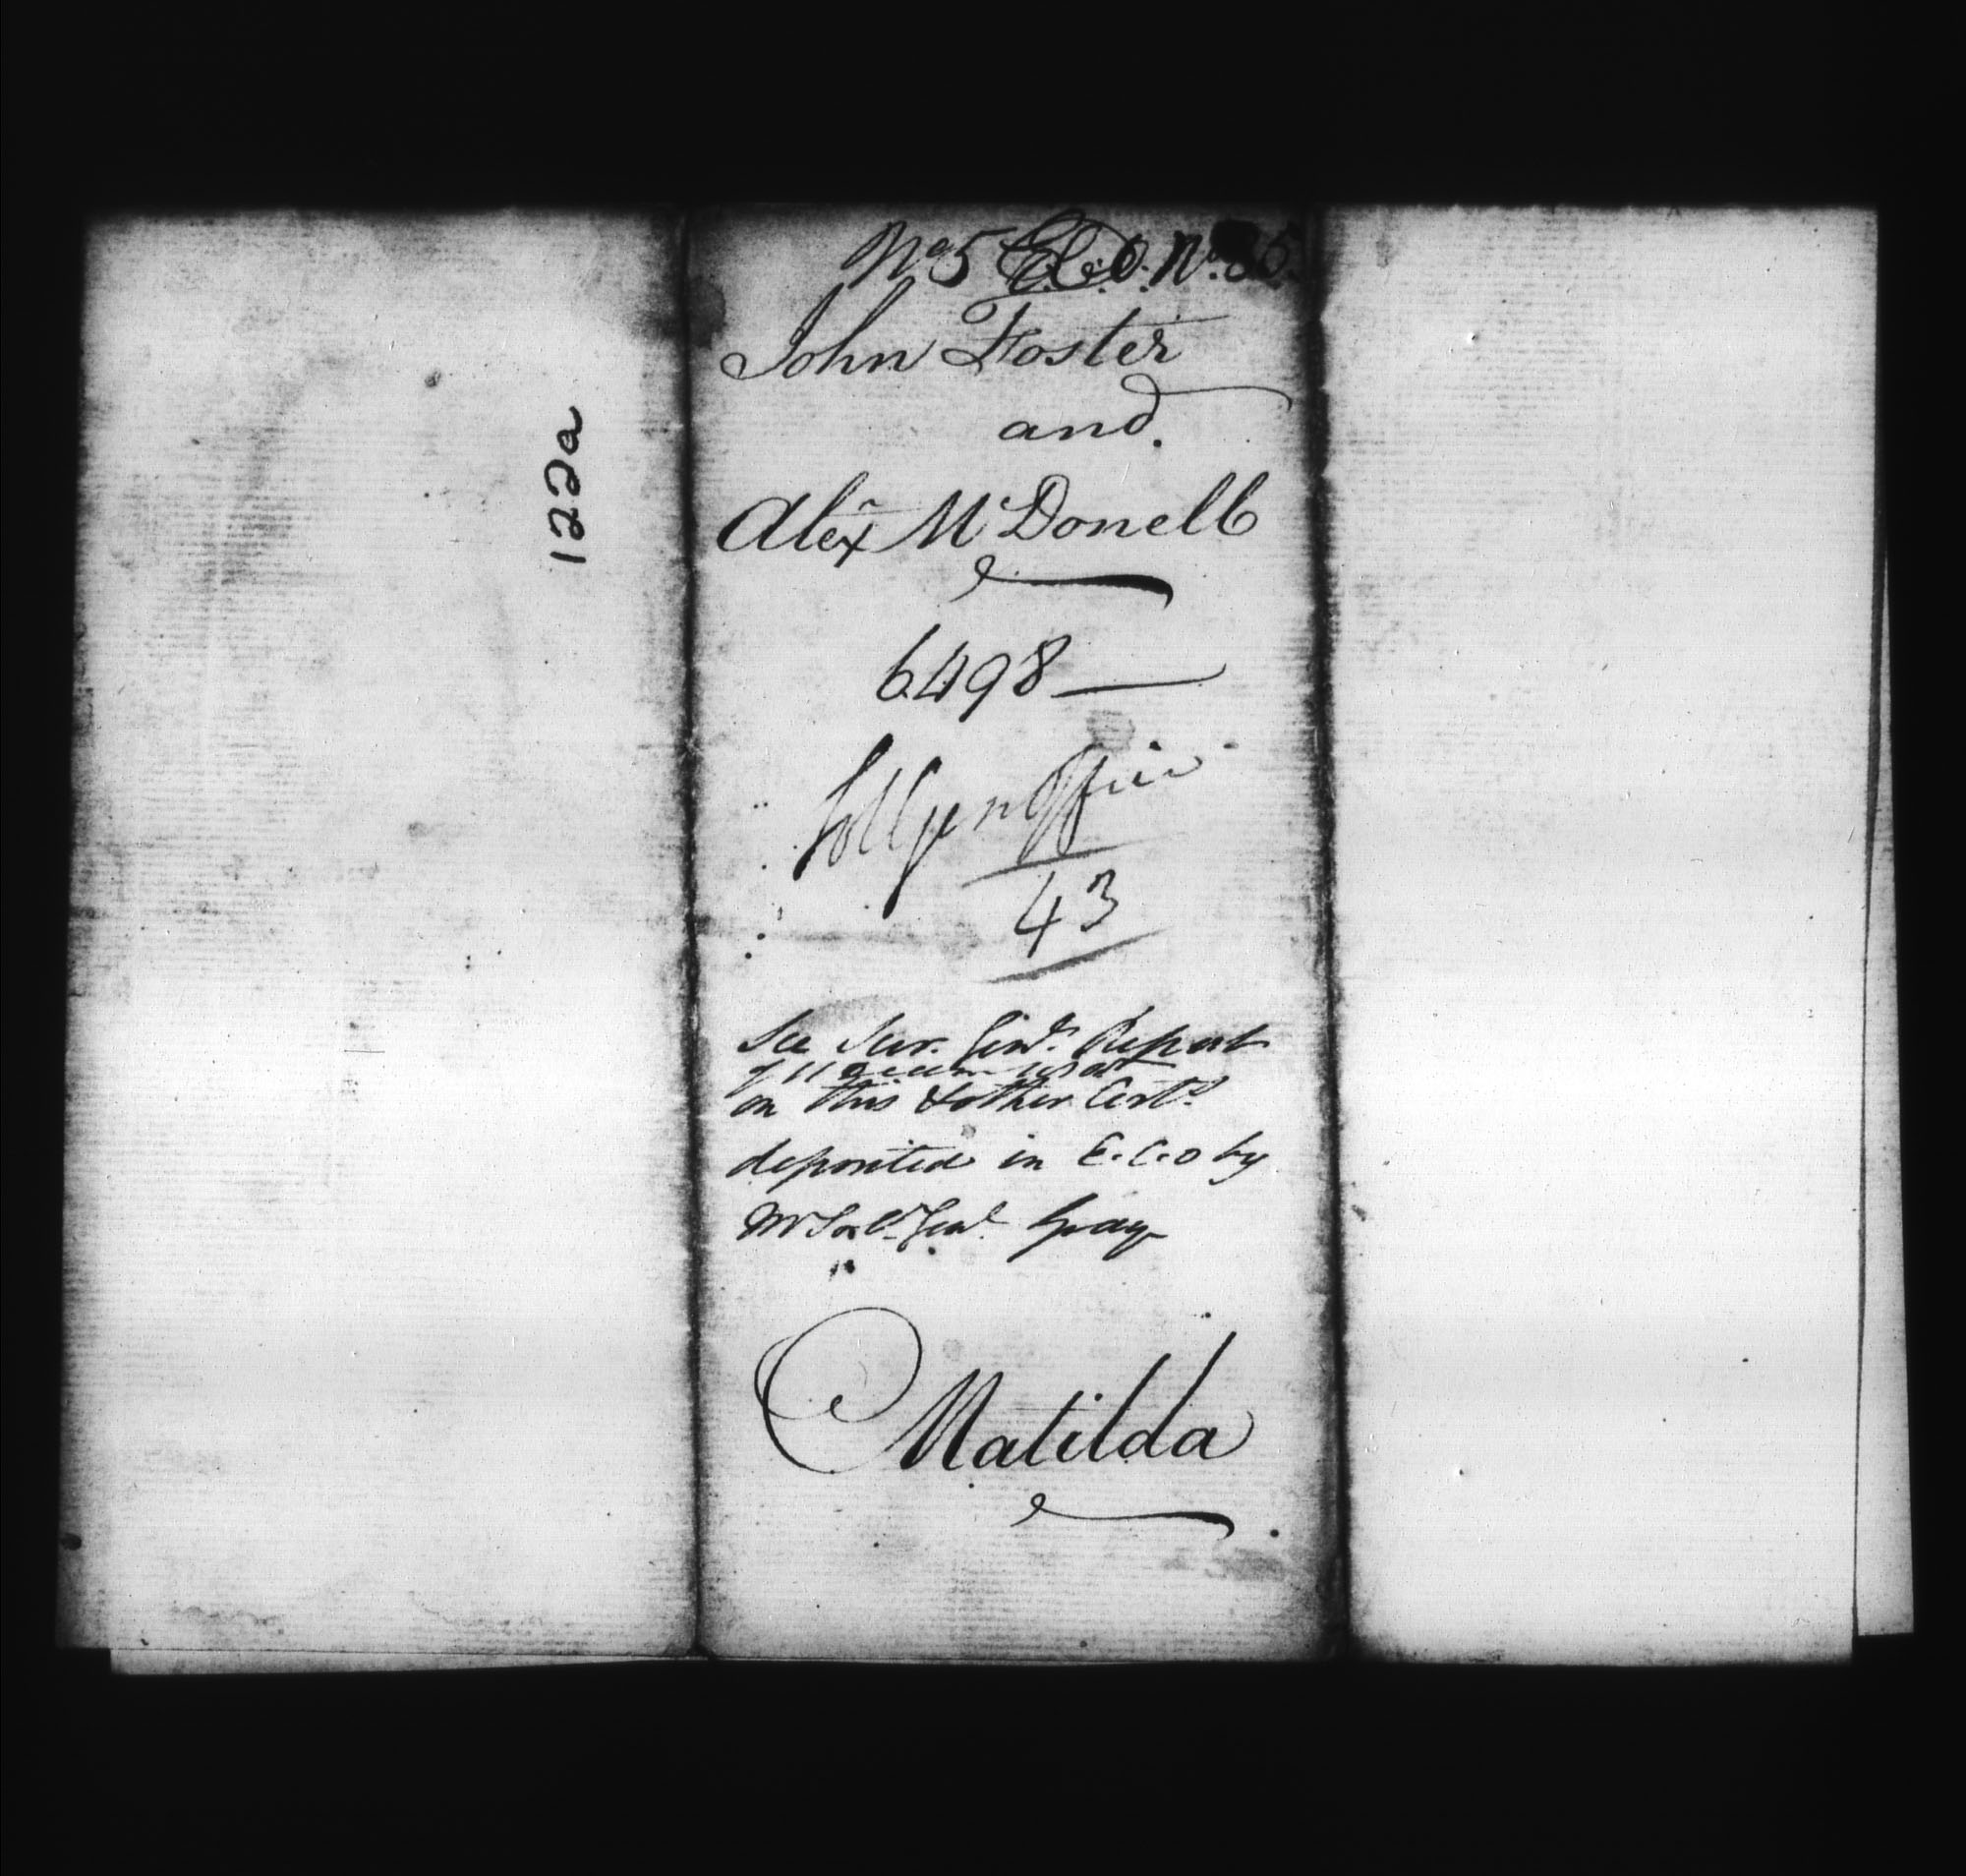 122a
No 5 E.C.O. No. 85.
John Foster
and
Alexr McDonell
6498
Soll Gen Office
43
See Sur. Genl. Report
of 11
on this & other Certs
deposited in E.C.O by
Mr Solr. Genl. Gray
Matilda